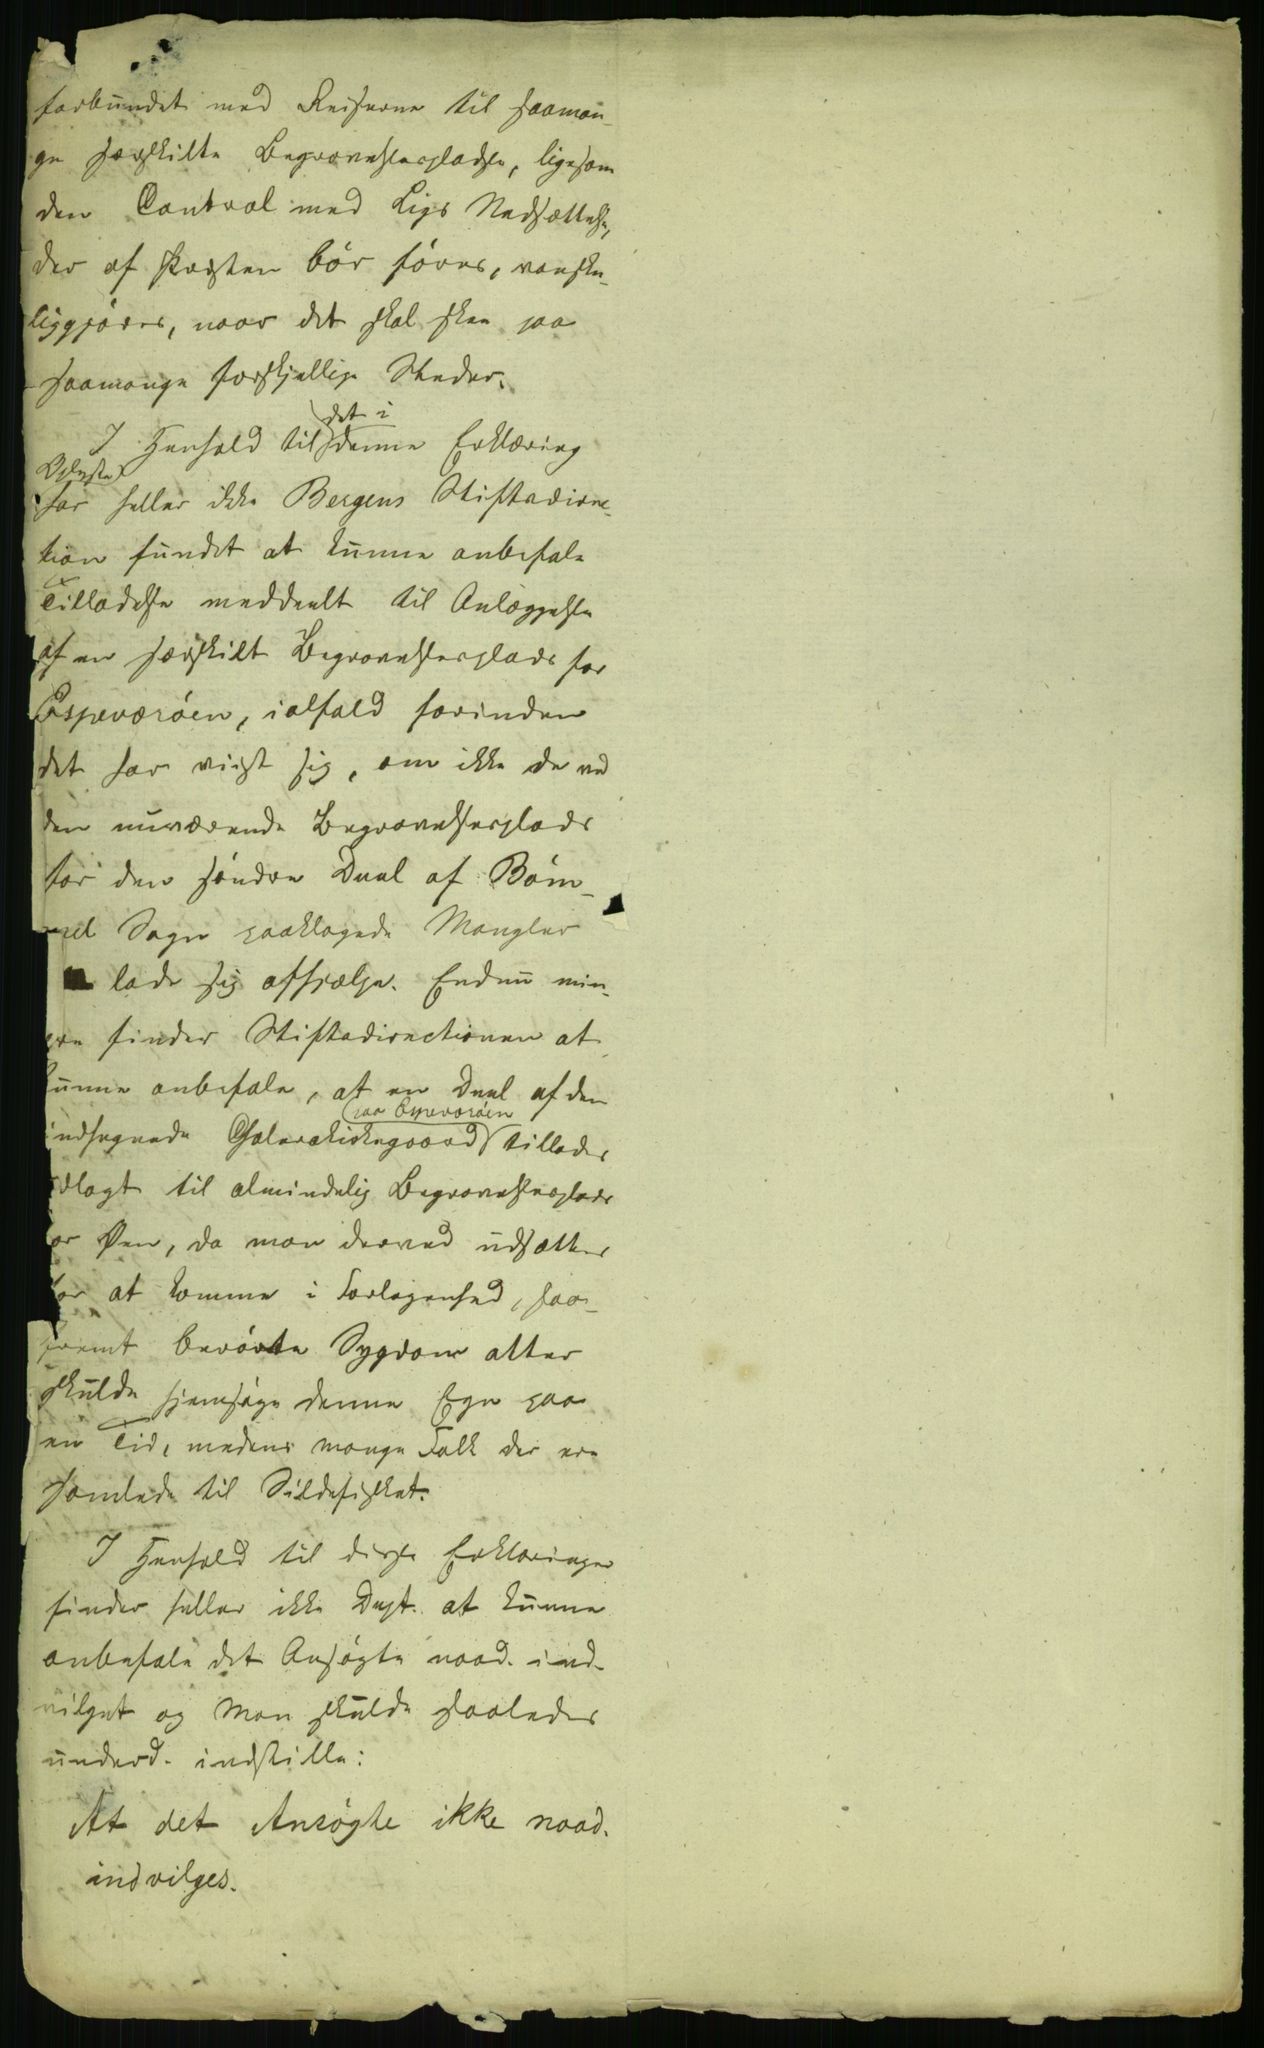 forbundet med Reiserne til saaman-
ge særskilte Begravelsespladse, ligesom
den Control med Ligs Nedsættelse,
der af Præsten bör föres, vanske-
liggjöres, naar det skal skee paa
saamange forskjellige Steder.
I Henhold til det i denne Erklæring
Oplyste har heller ikke Bergens Stiftsdirec-
tion fundet at kunne anbefale
Tilladelse meddeelt til Anlæggelse
af en særskilt Begravelsesplads for
Espeværöen, ialfald forinden
det har viist sig, om ikke de ved
den nuværende Begravelsesplads
for den söndre Deel af Böm-
mel Sogn paaklagede Mangler
lade sig afhjælpe. Endnu min-
dre finder Stiftsdirectionen at
kunne anbefale, at en Deel af den
indhegnede Cholerakirkegaard paa Espeværöen tillades
udlagt til almindelig Begravelsesplads
for Øen, da man derved udsættes
for at komme i Forlegenhed, saa-
fremt berörte Sygdom atter
skulde hjemsöge denne Egn paa
en Tid, medens mange Folk der ere
samlede til Sildefisket.
I Henhold til disse Erklæringer
finder heller ikke Dept. at kunne
anbefale det Ansögte naad. ind-
vilget og Man skulde saaledes
underd. indstille:
At det Ansögte ikke naad.
indvilges.